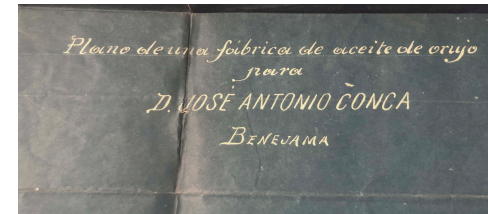 Plano de una fábrica de aceite de orujo
para
D. JOSÉ ANTONIO CONCA
BENEJAMA